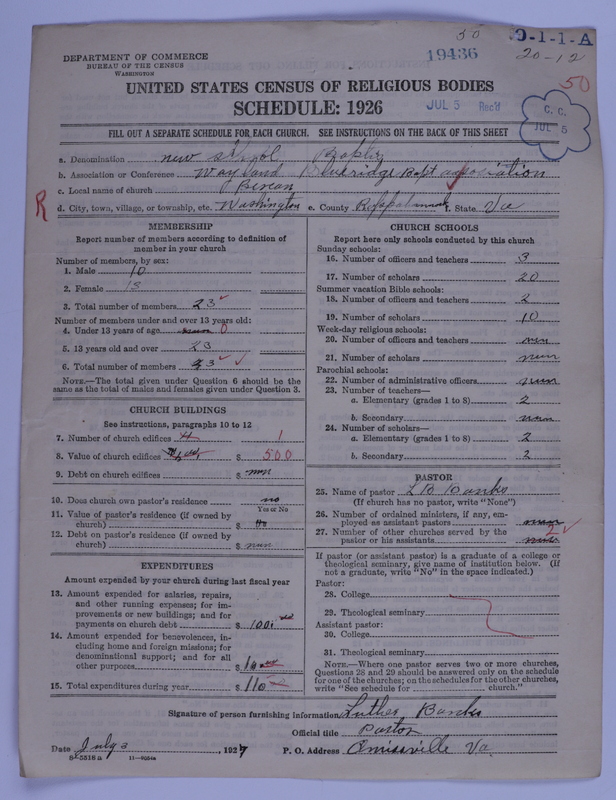 50
0-1-1-A
19436
20-12
50
DEPARTMENT OF COMMERCE
BUREAU OF THE CENSUS
WASHINGTON
UNITED STATES CENSUS OF RELIGIOUS BODIES
SCHEDULE: 1926
JUL 5 Rec'd
C. C.
JUL 5
FILL OUT A SEPARATE SCHEDULE FOR EACH CHURCH. SEE INSTRUCTIONS ON THE BACK OF THIS SHEET
a. Denomination
b. Association or Conference Wayland Blueridge Bapt association
c. Local name of church Berean
d. City, town, village, or township, etc. Washington e. County Rappahannock f. State Va
R
MEMBERSHIP
Report number of members according to definition of member in your church
Number of members, by sex:
1. Male 10
2. Female 13
3. Total number of members 23
Number of members under and over 13 years old:
4. Under 13 years of age 0
5. 13 years old and over 23
6. Total number of members 23
NOTE.—The total given under Question 6 should be the
same as the total of males and females given under Question 3.
CHURCH BUILDINGS
See instructions, paragraphs 10 to 12
7. Number of church edifices 1
8. Value of church edifices $ 500
9. Debt on church edifices $ nun
10. Does church own pastor's residence no
Yes or No
11. Value of pastor's residence (if owned by
church) $
12. Debt on pastor's residence (if owned by
church) $ nun
EXPENDITURES
Amount expended by your church during last fiscal year
13. Amount expended for salaries, repairs,
and other running expenses; for im-
provements or new buildings; and for
payments on church debt $ 100
14. Amount expended for benevolences, in-
cluding home and foreign missions; for
denominational support; and for all
other purposes $ 10
15. Total expenditures during year $ 110
CHURCH SCHOOLS
Report here only schools conducted by this church
Sunday schools:
16. Number of officers and teachers 3
17. Number of scholars 20
Summer vacation Bible schools:
18. Number of officers and teachers 2
19. Number of scholars 10
Week-day religious schools:
20. Number of officers and teachers nun
21. Number of scholars nun
Parochial schools:
22. Number of administrative officers nun
23. Number of teachers—
a. Elementary (grades 1 to 8) 2
b. Secondary nun
24. Number of scholars—
a. Elementary (grades 1 to 8) 2
b. Secondary 2
PASTOR
25. Name of pastor L B Banks
(If church has no pastor, write "None")
26. Number of ordained ministers, if any, em-
ployed as assistant pastors nun
27. Number of other churches served by the
pastor or his assistants 2
If pastor (or assistant pastor) is a graduate of a college or
theological seminary, give name of institution below. (If
not a graduate, write "No" in the space indicated.)
Pastor:
28. College
29. Theological seminary
Assistant pastor:
30. College
31. Theological seminary
NOTE.—Where one pastor serves two or more churches,
Questions 28 and 29 should be answered only on the schedule
for one of the churches; on the schedules for the other churches,
write "See schedule for church."
Signature of person furnishing information Luther Banks
Official title Pastor
Date July 2, 1927 P. O. Address Amissville Va.
8-5518 a